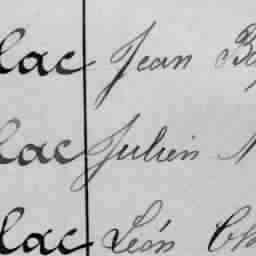 lac Jean
lac Julien
lac Léon